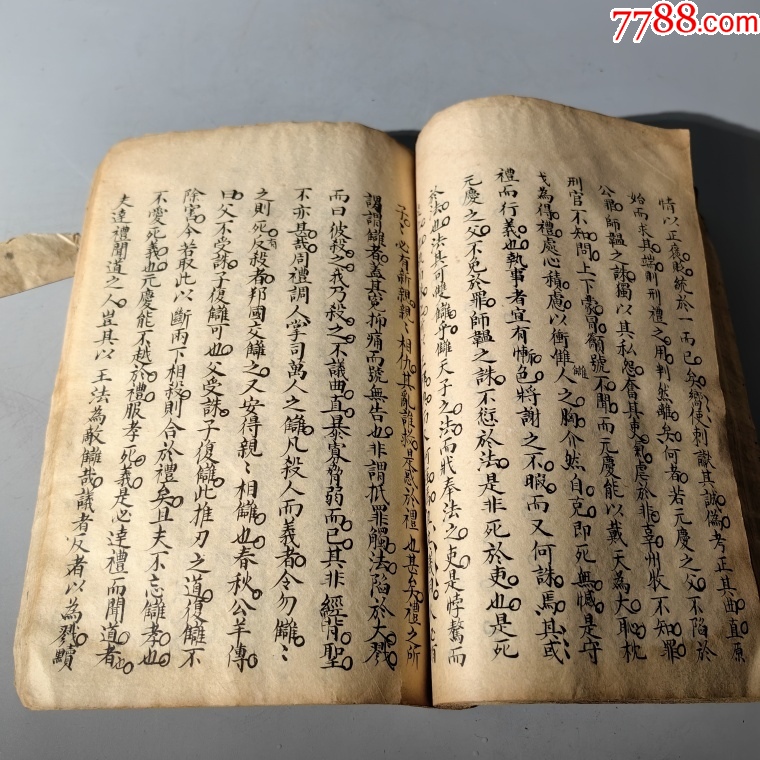 7788.com
中国收藏热线
情以正褒貶統於一而已矣嚮使刺讞其誠偽考正其曲直原
始而求其端則刑禮之用判然離矣何者若元慶之父不陷於
公罪師韞之誅獨以其私怨奮其吏氣虐於非辜州收不知罪
刑官不知問上下蒙冒籲號不聞而元慶能以戴天為大恥枕
戈為得禮處心積慮以衝讎人之胸介然自克即死無憾是守
禮而行義也執事者宜有慚色將謝之不暇而又何誅焉其或
元慶之父不免於罪師韞之誅不愆於法是非死於吏也是死
於法也法其可讎乎讎天子之法而戕奉法之吏是悖驁而
子〻必有新親親〻相仇其亂誰救是惑於禮也甚矣禮之所
謂讎者蓋其冤抑痛而號無告也非謂抵罪觸法陷於大戮
而曰彼殺之我乃殺之不議曲直暴寡脅弱而已其非經背聖
不亦甚哉周禮調人掌司萬人之讎凡殺人而義者令勿讎〻
之則死有反殺者邦國交讎之又安得親〻相讎也春秋公羊傳
曰父不受誅子復讎可也父受誅子復讎此推刃之道復讎不
除害今若取此以斷兩下相殺則合於禮矣且夫不忘讎孝也
不愛死義也元慶能不越於禮服孝死義是必達禮而聞道者也
夫達禮聞道之人豈其以王法為敵讎哉議者反者以為戮黷